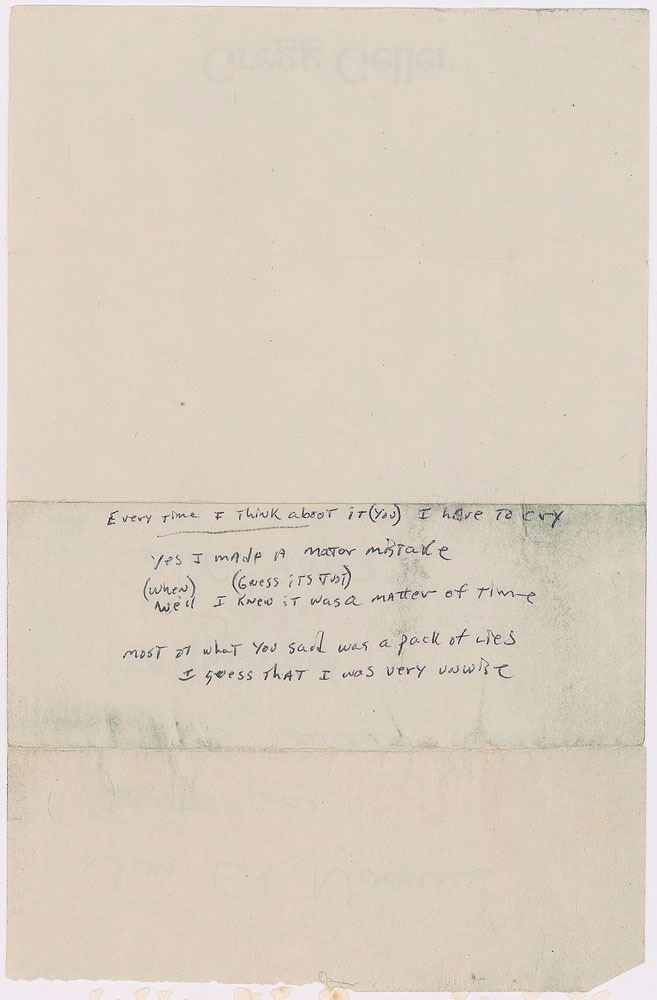 Gregg Geller
Every time I think about it (you) I have to cry
Yes I made a major mistake
(when) (Guess its just)
well I knew it was a matter of time
most of what you said was a pack of lies
I guess that I was very unwise
Jim Ed Norman